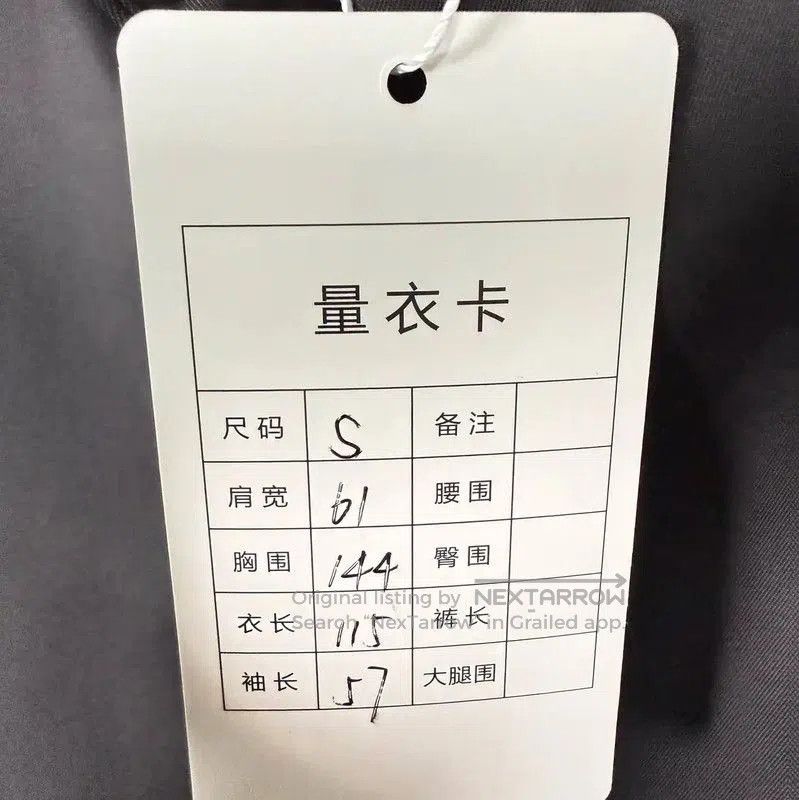 量衣卡
尺码 S 备注
肩宽 61 腰围
胸围 144 臀围
Original listing by NEXTARROW
衣长 115 裤长
Search "NexTarrow" in Grailed app.
袖长 57 大腿围